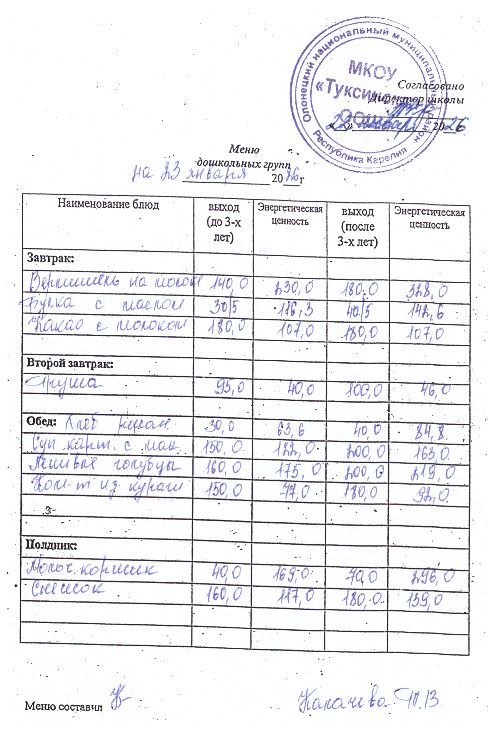 Олонецкий национальный муниципальный район
МКОУ
«Туксинская
ООШ»
Республика Карелия
Согласовано
Директор школы
22 января 2026
Меню
дошкольных групп
на 23 января 2026г
Наименование блюд выход (до 3-х лет) Энергетическая ценность выход (после 3-х лет) Энергетическая ценность
Завтрак:
Вермишель на молоке 140,0 230,0 180,0 328,0
Булка с маслом 30/5 116,3 40/5 142,6
Какао с молоком 180,0 107,0 180,0 107,0
Второй завтрак:
Груша 95,0 40,0 100,0 46,0
Обед: Хлеб ржан 30,0 63,6 40,0 84,8
Суп карт. с мак 150,0 122,0 200,0 163,0
Ленивые голубцы 160,0 175,0 200,0 219,0
Ком-т из кураги 150,0 77,0 180,0 92,0
Полдник:
Молоч. коржик 40,0 169,0 70,0 296,0
Снежок 160,0 117,0 180,0 139,0
Меню составил Калачева Т.В.